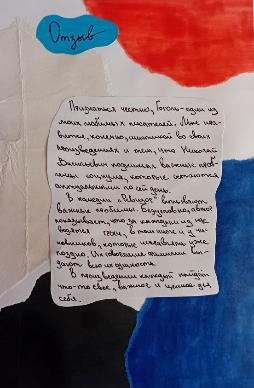 Отзыв
Признаться честно, Гоголь - один из
моих любимых писателей. Мне нра-
вится, конечно, мистикой во своих
произведениях и тем, что Николай
Васильевич поднимал важные проб-
лемы социума, которые остаются
актуальными по сей день.
В комедии «Ревизор»
важные проблемы. Безусловно, автор
показывает, что за каждым из нас
водятся грехи, в том числе и у чи-
новников, которые
поздно. Их говорящие фамилии вы-
дают всю их сущность.
В произведении каждый найдёт
что-то своё, важное и ценное для
себя.